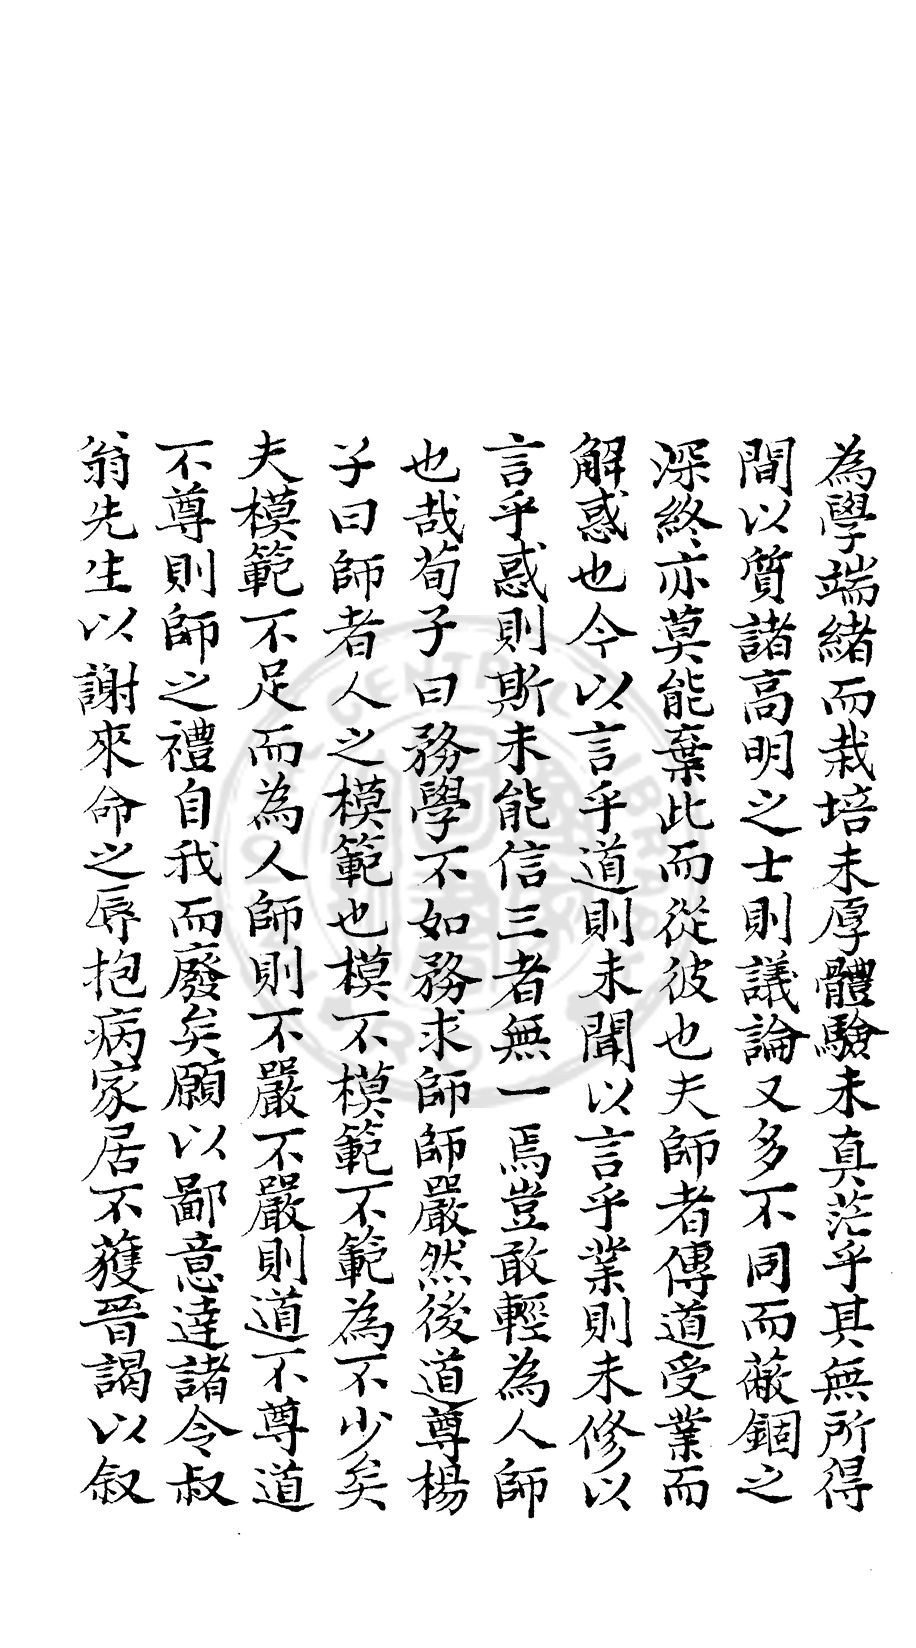 為學端緒而栽培未厚體驗未真茫乎其無所得
間以質諸高明之士則議論又多不同而蔽錮之
深終亦莫能棄此而從彼也夫師者傳道受業而
解惑也今以言乎道則未聞以言乎業則未修以
言乎惑則斯未能信三者無一焉豈敢輕為人師
也哉荀子曰務學不如務求師師嚴然後道尊楊
子曰師者人之模範也模不模範不範為不少矣
夫模範不足而為人師則不嚴不嚴則道不尊道
不尊則師之禮自我而廢矣願以鄙意達諸令叔
翁先生以謝來命之辱抱病家居不獲晉謁以叙